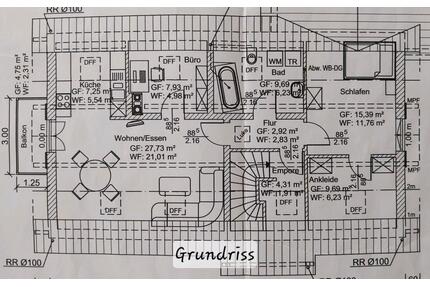 RR Ø100
RR Ø100
DFF
DFF
DFF
Büro
WM TR
Bad
Abw. WB-DG
Küche
GF: 7,25 m²
WF: 5,54 m²
GF: 7,93 m²
WF: 4,98 m²
GF: 9,69 m²
WF: 6,23 m²
Schlafen
GF: 4,75 m²
WF: 2,31 m²
GF: 15,39 m²
WF: 11,76 m²
MPF
3.00
Balkon
0.00 m
Wohnen/Essen
GF: 27,73 m²
WF: 21,01 m²
88⁵
2.16
88⁵
2.16
88⁵
2.16
88⁵
2.16
Flur
GF: 2,92 m²
WF: 2,83 m²
1.00 m
1.25
Empore
GF: 4,31 m²
(WF: 1,91 m²)
Ankleide
GF: 9,69 m²
WF: 6,23 m²
88⁵
2.16
MPF
2m
1m
DFF
DFF
DFF
DFF
RR Ø100
Grundriss
RR Ø100
RR Ø100